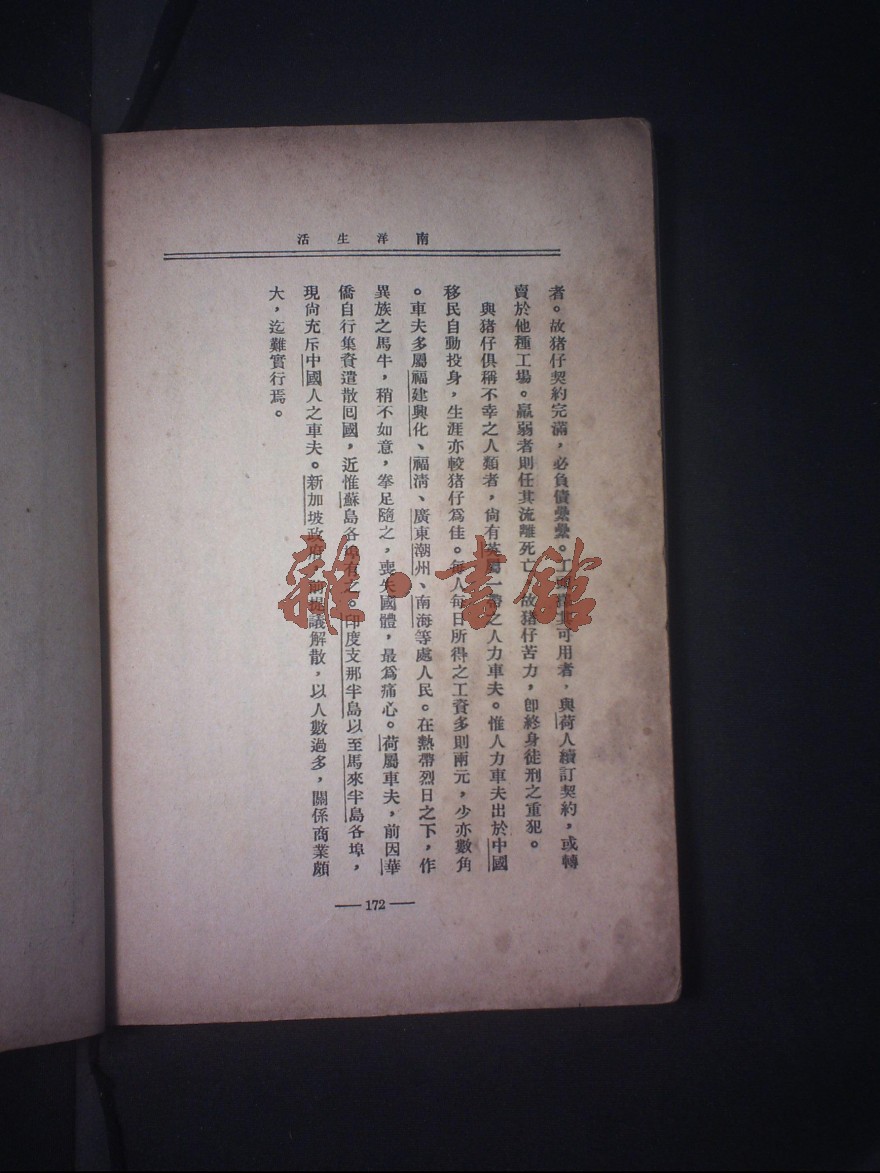 南洋生活
者。故猪仔契約完滿，必負債纍纍。工可用者，與荷人續訂契約，或轉
賣於他種工場。羸弱者則任其流離死亡，故猪仔苦力，卽終身徒刑之重犯。
與猪仔俱稱不幸之人類者，尙有英屬一帶之人力車夫。惟人力車夫出於中國
移民自動投身，生涯亦較猪仔爲佳。每人每日所得之工資多則兩元，少亦數角
。車夫多屬福建興化、福清、廣東潮州、南海等處人民。在熱帶烈日之下，作
異族之馬牛，稍不如意，拳足隨之，喪失國體，最爲痛心。荷屬車夫，前因華
僑自行集資遣散囘國，近惟蘇島各埠有之。印度支那半島以至馬來半島各埠，
現尙充斥中國人之車夫。新加坡政府前提議解散，以人數過多，關係商業頗
大，迄難實行焉。
— 172 —
雜·書館